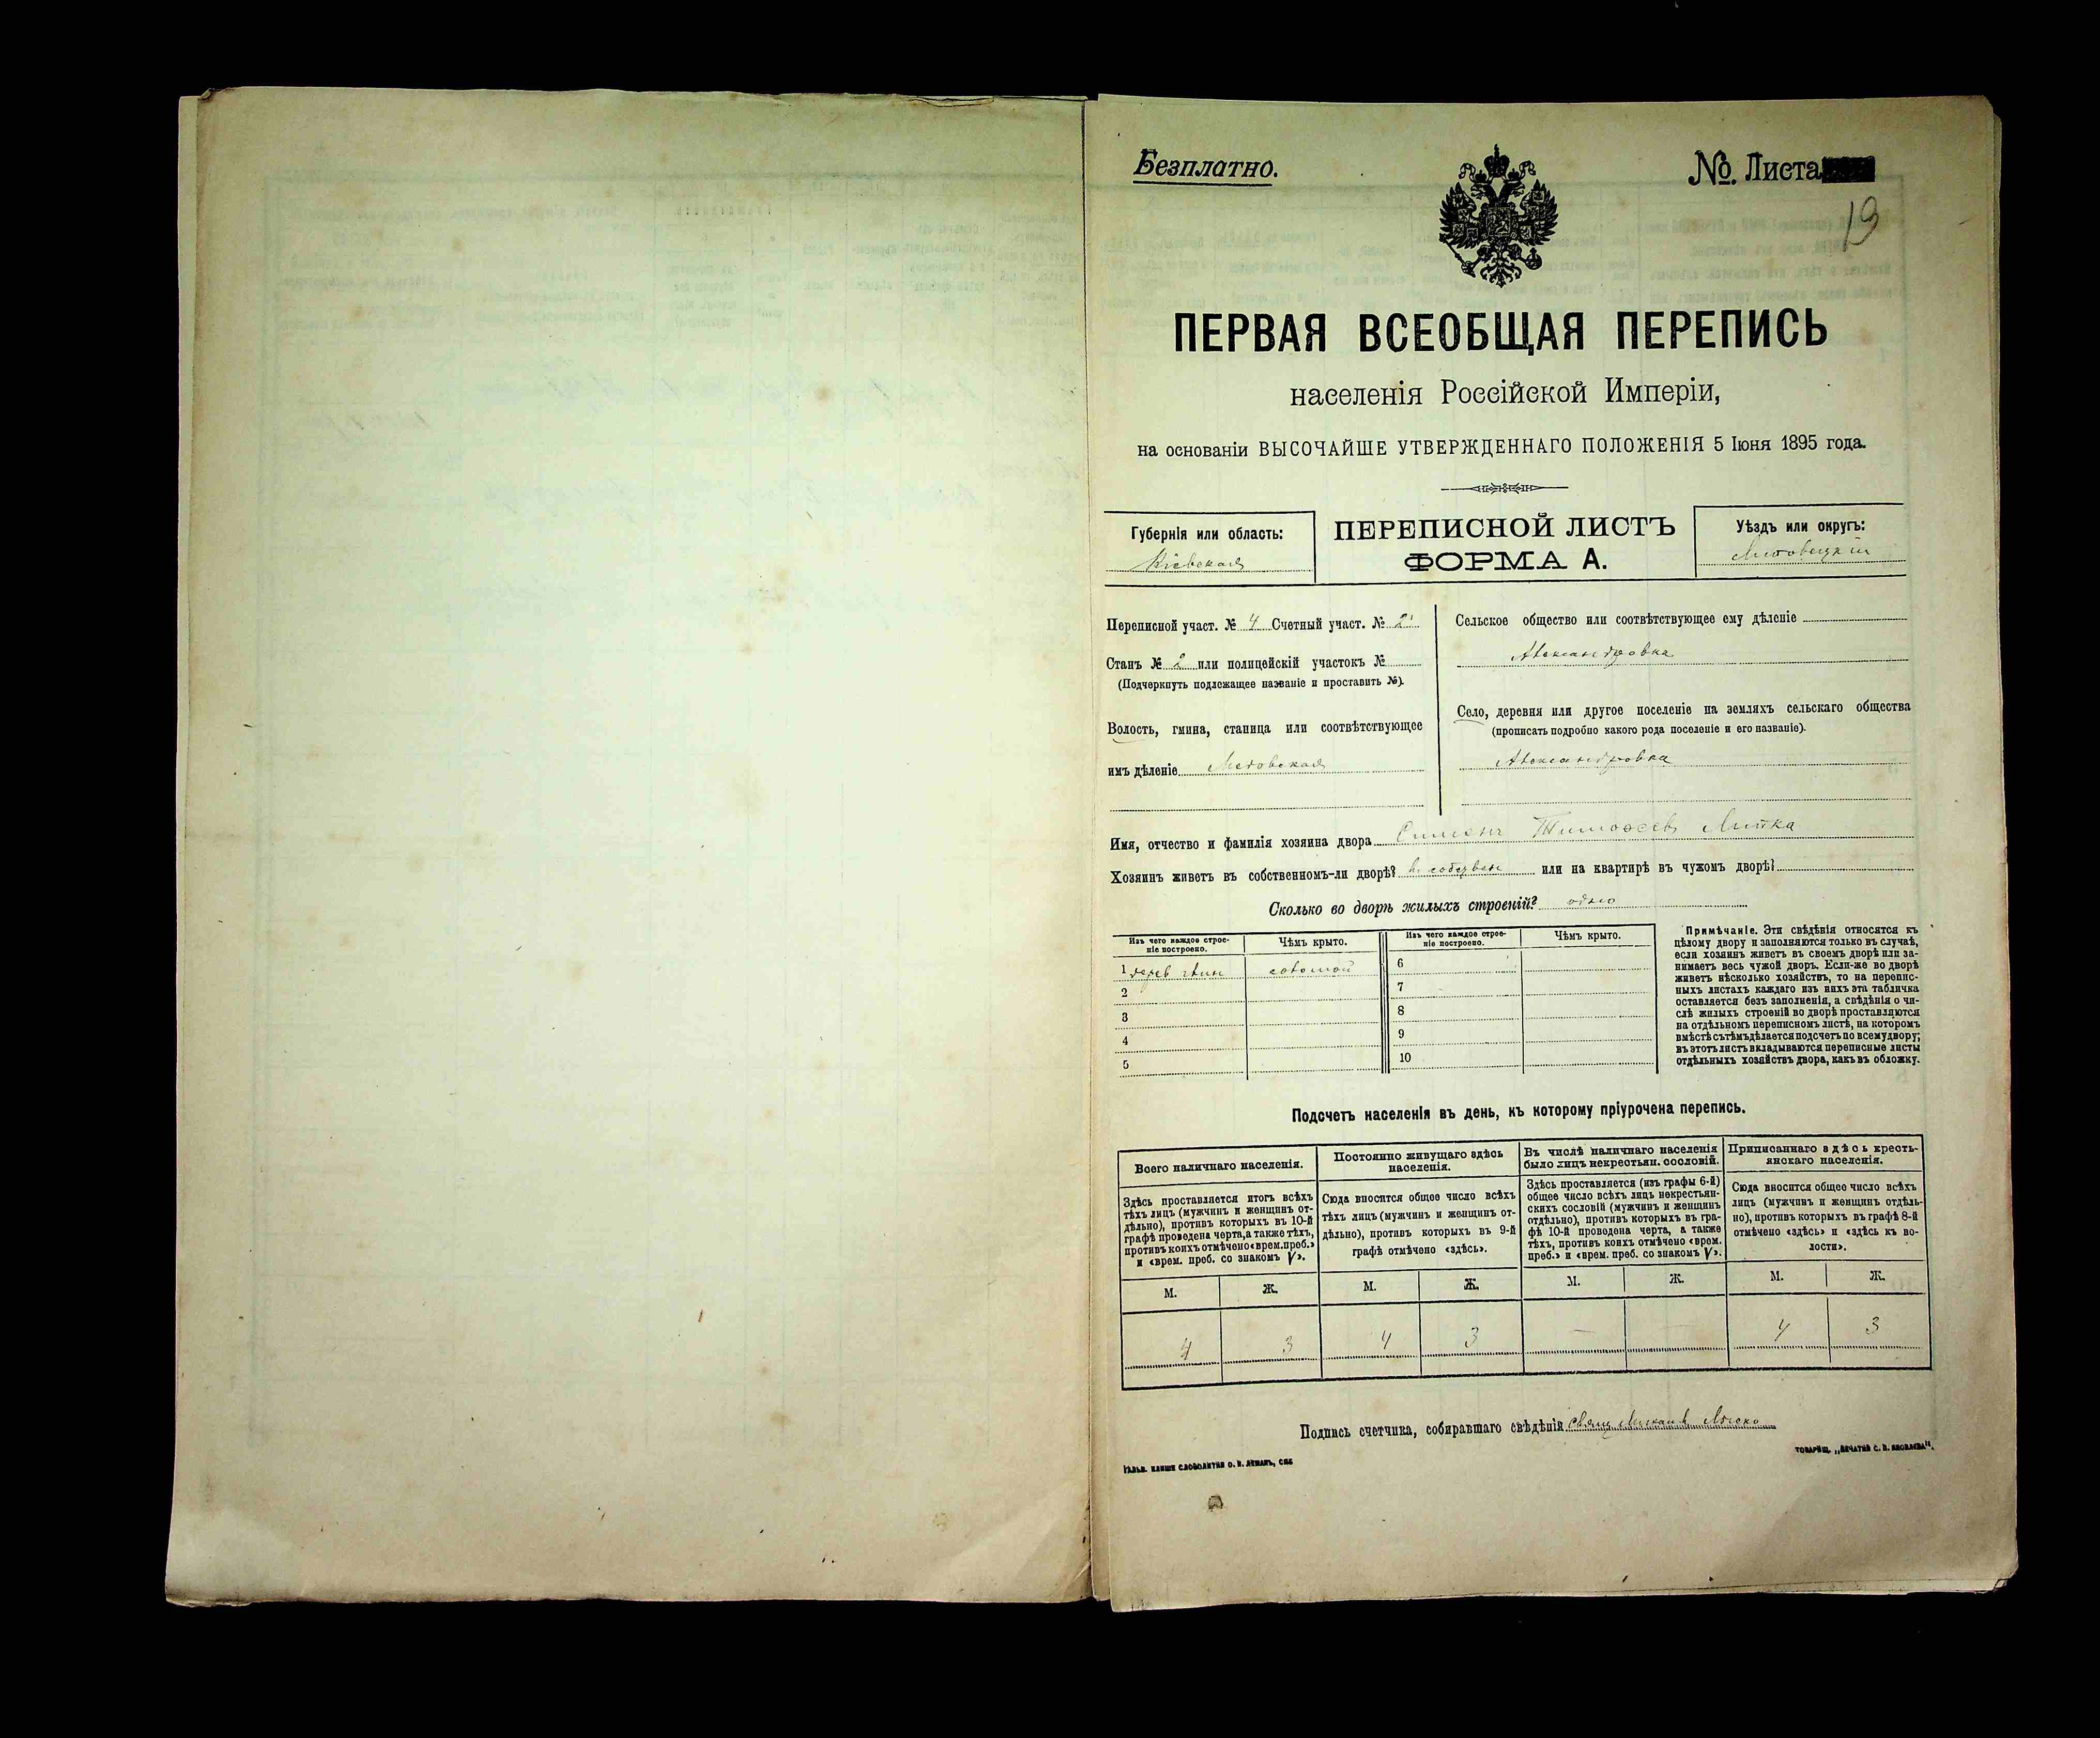 Безплатно.
№ Листа
19
ПЕРВАЯ ВСЕОБЩАЯ ПЕРЕПИСЬ
населенія Россійской Имперіи,
на основаніи ВЫСОЧАЙШЕ УТВЕРЖДЕННАГО ПОЛОЖЕНІЯ 5 Іюня 1895 года.
Губернія или область:
Кіевская
ПЕРЕПИСНОЙ ЛИСТЪ
ФОРМА А.
Уѣздъ или округъ:
Переписной участ. № 4 Счетный участ. № 2
Станъ № 2 или полицейскій участокъ №
(Подчеркнуть подлежащее названіе и проставить №).
Волость, гмина, станица или соотвѣтствующее
имъ дѣленіе
Сельское общество или соотвѣтствующее ему дѣленіе
Александровка
Село, деревня или другое поселеніе на земляхъ сельскаго общества
(прописать подробно какого рода поселеніе и его названіе).
Александровка
Имя, отчество и фамилія хозяина двора Тимофеев
Хозяинъ живетъ въ собственномъ-ли дворѣ? или на квартирѣ въ чужомъ дворѣ?
Сколько во дворѣ жилыхъ строеній? одно
Изъ чего каждое строе-
ніе построено.
Чѣмъ крыто.
1 соломой
2
3
4
5
Изъ чего каждое строе-
ніе построено.
Чѣмъ крыто.
6
7
8
9
10
Примѣчаніе. Эти свѣдѣнія относятся къ
цѣлому двору и заполняются только въ случаѣ,
если хозяинъ живетъ въ своемъ дворѣ или за-
нимаетъ весь чужой дворъ. Если-же во дворѣ
живетъ нѣсколько хозяйствъ, то на перепис-
ныхъ листахъ каждаго изъ нихъ эта табличка
оставляется безъ заполненія, а свѣдѣнія о чи-
слѣ жилыхъ строеній во дворѣ проставляются
на отдѣльномъ переписномъ листѣ, на которомъ
вмѣстѣ съ тѣмъ дѣлается подсчетъ по всему двору;
въ этотъ листъ вкладываются переписные листы
отдѣльныхъ хозяйствъ двора, какъ въ обложку.
Подсчетъ населенія въ день, къ которому пріурочена перепись.
Всего наличнаго населенія.
Здѣсь проставляется итогъ всѣхъ
тѣхъ лицъ (мужчинъ и женщинъ от-
дѣльно), противъ которыхъ въ 10-й
графѣ проведена черта, а также тѣхъ,
противъ коихъ отмѣчено «врем. преб.»
и «врем. преб. со знакомъ V».
М. Ж.
4 3
Постоянно живущаго здѣсь
населенія.
Сюда вносится общее число всѣхъ
тѣхъ лицъ (мужчинъ и женщинъ от-
дѣльно), противъ которыхъ въ 9-й
графѣ отмѣчено «здѣсь».
М. Ж.
4 3
Въ числѣ наличнаго населенія
было лицъ некрестьян. сословій.
Здѣсь проставляется (изъ графы 6-й)
общее число всѣхъ лицъ некрестьян-
скихъ сословій (мужчинъ и женщинъ
отдѣльно), противъ которыхъ въ гра-
фѣ 10-й проведена черта, а также
тѣхъ, противъ коихъ отмѣчено «врем.
преб.» и «врем. преб. со знакомъ V».
М. Ж.
— —
Приписаннаго здѣсь кресть-
янскаго населенія.
Сюда вносится общее число всѣхъ
лицъ (мужчинъ и женщинъ отдѣль-
но), противъ которыхъ въ графѣ 8-й
отмѣчено «здѣсь» и «здѣсь къ во-
лости».
М. Ж.
4 3
Подпись счетчика, собиравшаго свѣдѣнія
ГАЛЬВ. КЛИШЕ СЛОВОЛИТНИ О. И. ЛЕМАНЪ, СПБ
ТОВАРИЩ. „ПЕЧАТНЯ С. П. ЯКОВЛЕВА".